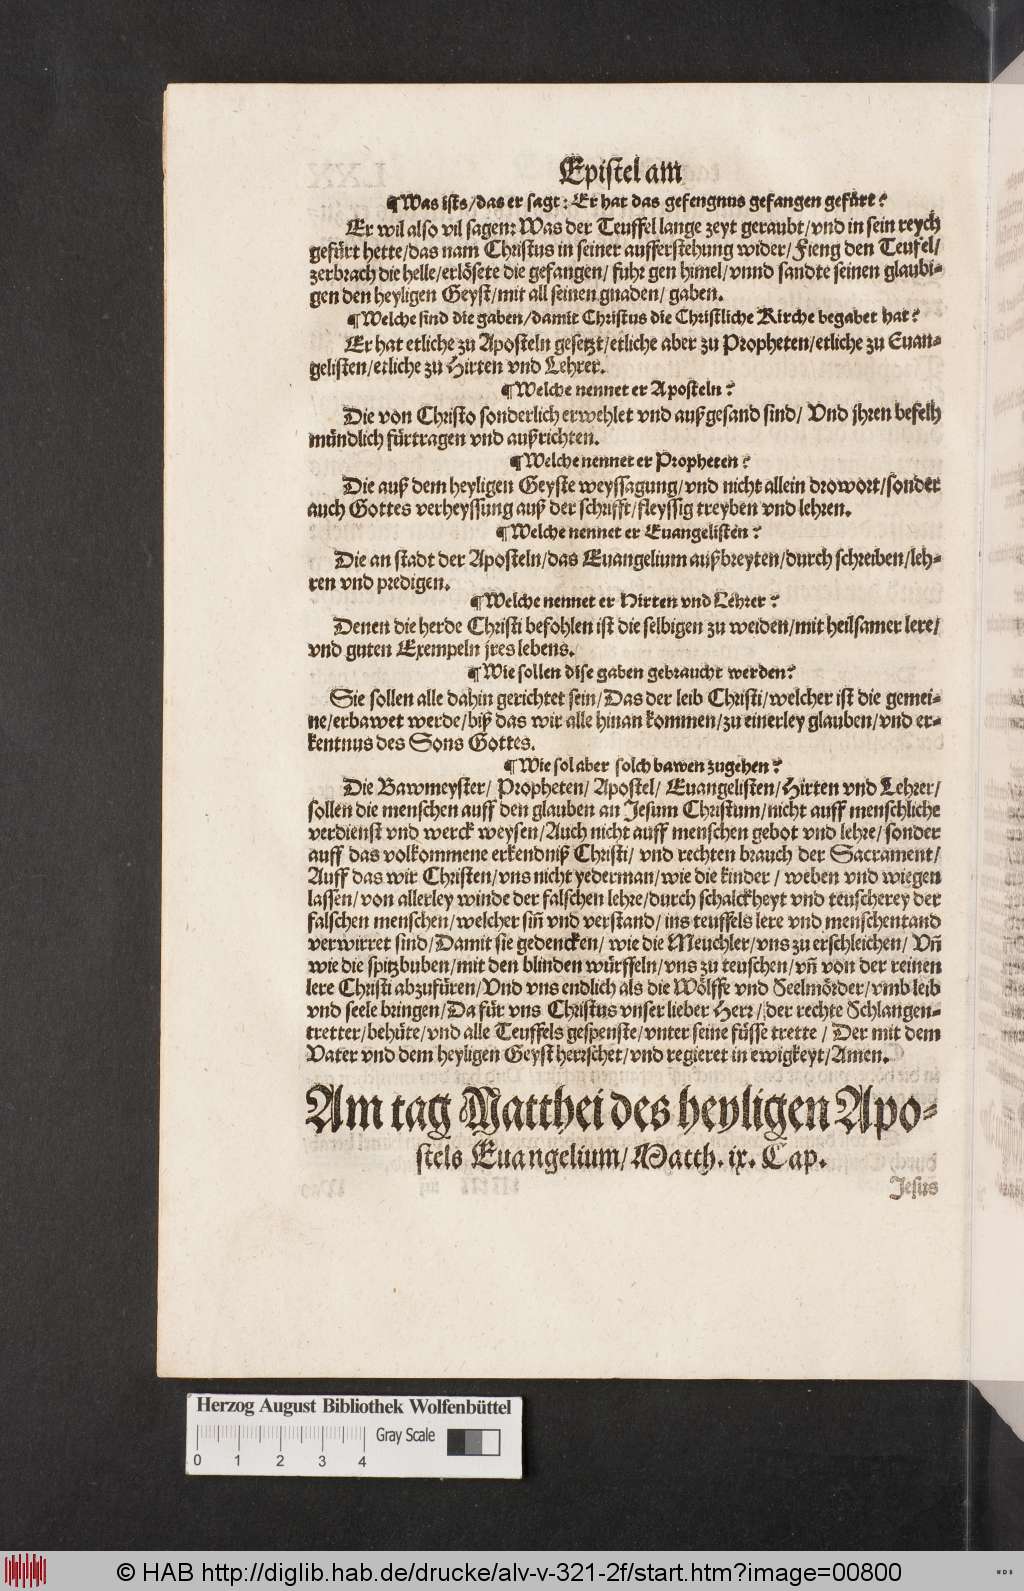 Epistel am
¶Was ists/das er sagt: Er hat das gefengnus gefangen gefürt?
Er wil also vil sagen: Was der Teuffel lange zeyt geraubt/vnd in sein reych
gefürt hette/das nam Christus in seiner aufferstehung wider/Fieng den Teufel/
zerbrach die helle/erlösete die gefangen/ fuhr gen himel/vnnd sandte seinen glaubi-
gen den heyligen Geyst/mit all seinen gnaden/ gaben.
¶Welche sind die gaben/damit Christus die Christliche Kirche begabet hat?
Er hat etliche zu Aposteln gesetzt/etliche aber zu Propheten/etliche zu Euan-
gelisten/etliche zu Hirten vnd Lehrer.
¶Welche nennet er Aposteln?
Die von Christo sonderlich erwehlet vnd außgesand sind/ Vnd jhren befelh
mündlich fürtragen vnd außrichten.
¶Welche nennet er Propheten?
Die auß dem heyligen Geyste weyssagung/vnd nicht allein drowort/sonder
auch Gottes verheyssung auß der schrifft/fleyssig treyben vnd lehren.
¶Welche nennet er Euangelisten?
Die an stadt der Aposteln/das Euangelium außbreyten/durch schreiben/leh-
ren vnd predigen.
¶Welche nennet er Hirten vnd Lehrer?
Denen die herde Christi befohlen ist die selbigen zu weiden/mit heilsamer lere/
vnd guten Exempeln jres lebens.
¶Wie sollen dise gaben gebraucht werden?
Sie sollen alle dahin gerichtet sein/Das der leib Christi/welcher ist die gemei-
ne/erbawet werde/biß das wir alle hinan kommen/zu einerley glauben/vnd er-
kentnus des Sons Gottes.
¶Wie sol aber solch bawen zugehen?
Die Bawmeyster/ Propheten/ Apostel/ Euangelisten/Hirten vnd Lehrer/
sollen die menschen auff den glauben an Jesum Christum/nicht auff menschliche
verdienst vnd werck weysen/Auch nicht auff menschen gebot vnd lehre/sonder
auff das volkommene erkendniß Christi/ vnd rechten brauch der Sacrament/
Auff das wir Christen/vns nicht yederman/wie die kinder/ weben vnd wiegen
lassen/von allerley winde der falschen lehre/durch schalckheyt vnd teuscherey der
falschen menschen/welcher siñ vnd verstand/ ins teuffels lere vnd menschentand
verwirret sind/Damit sie gedencken/ wie die Meuchler/vns zu erschleichen/ Vñ
wie die spitzbuben/mit den blinden würffeln/vns zu teuschen/vñ von der reinen
lere Christi abzufüren/Vnd vns endlich als die Wölffe vnd Seelmörder/vmb leib
vnd seele bringen/Da für vns Christus vnser lieber Herr/der rechte Schlangen-
tretter/behüte/vnd alle Teuffels gespenste/vnter seine füsse trette/ Der mit dem
Vater vnd dem heyligen Geyst herrschet/vnd regieret in ewigkeyt/Amen.
Am tag Matthei des heyligen Apo-
stels Euangelium/Matth. ix. Cap.
Jesus
Herzog August Bibliothek Wolfenbüttel
Gray Scale
0 1 2 3 4
© HAB http://diglib.hab.de/drucke/alv-v-321-2f/start.htm?image=00800